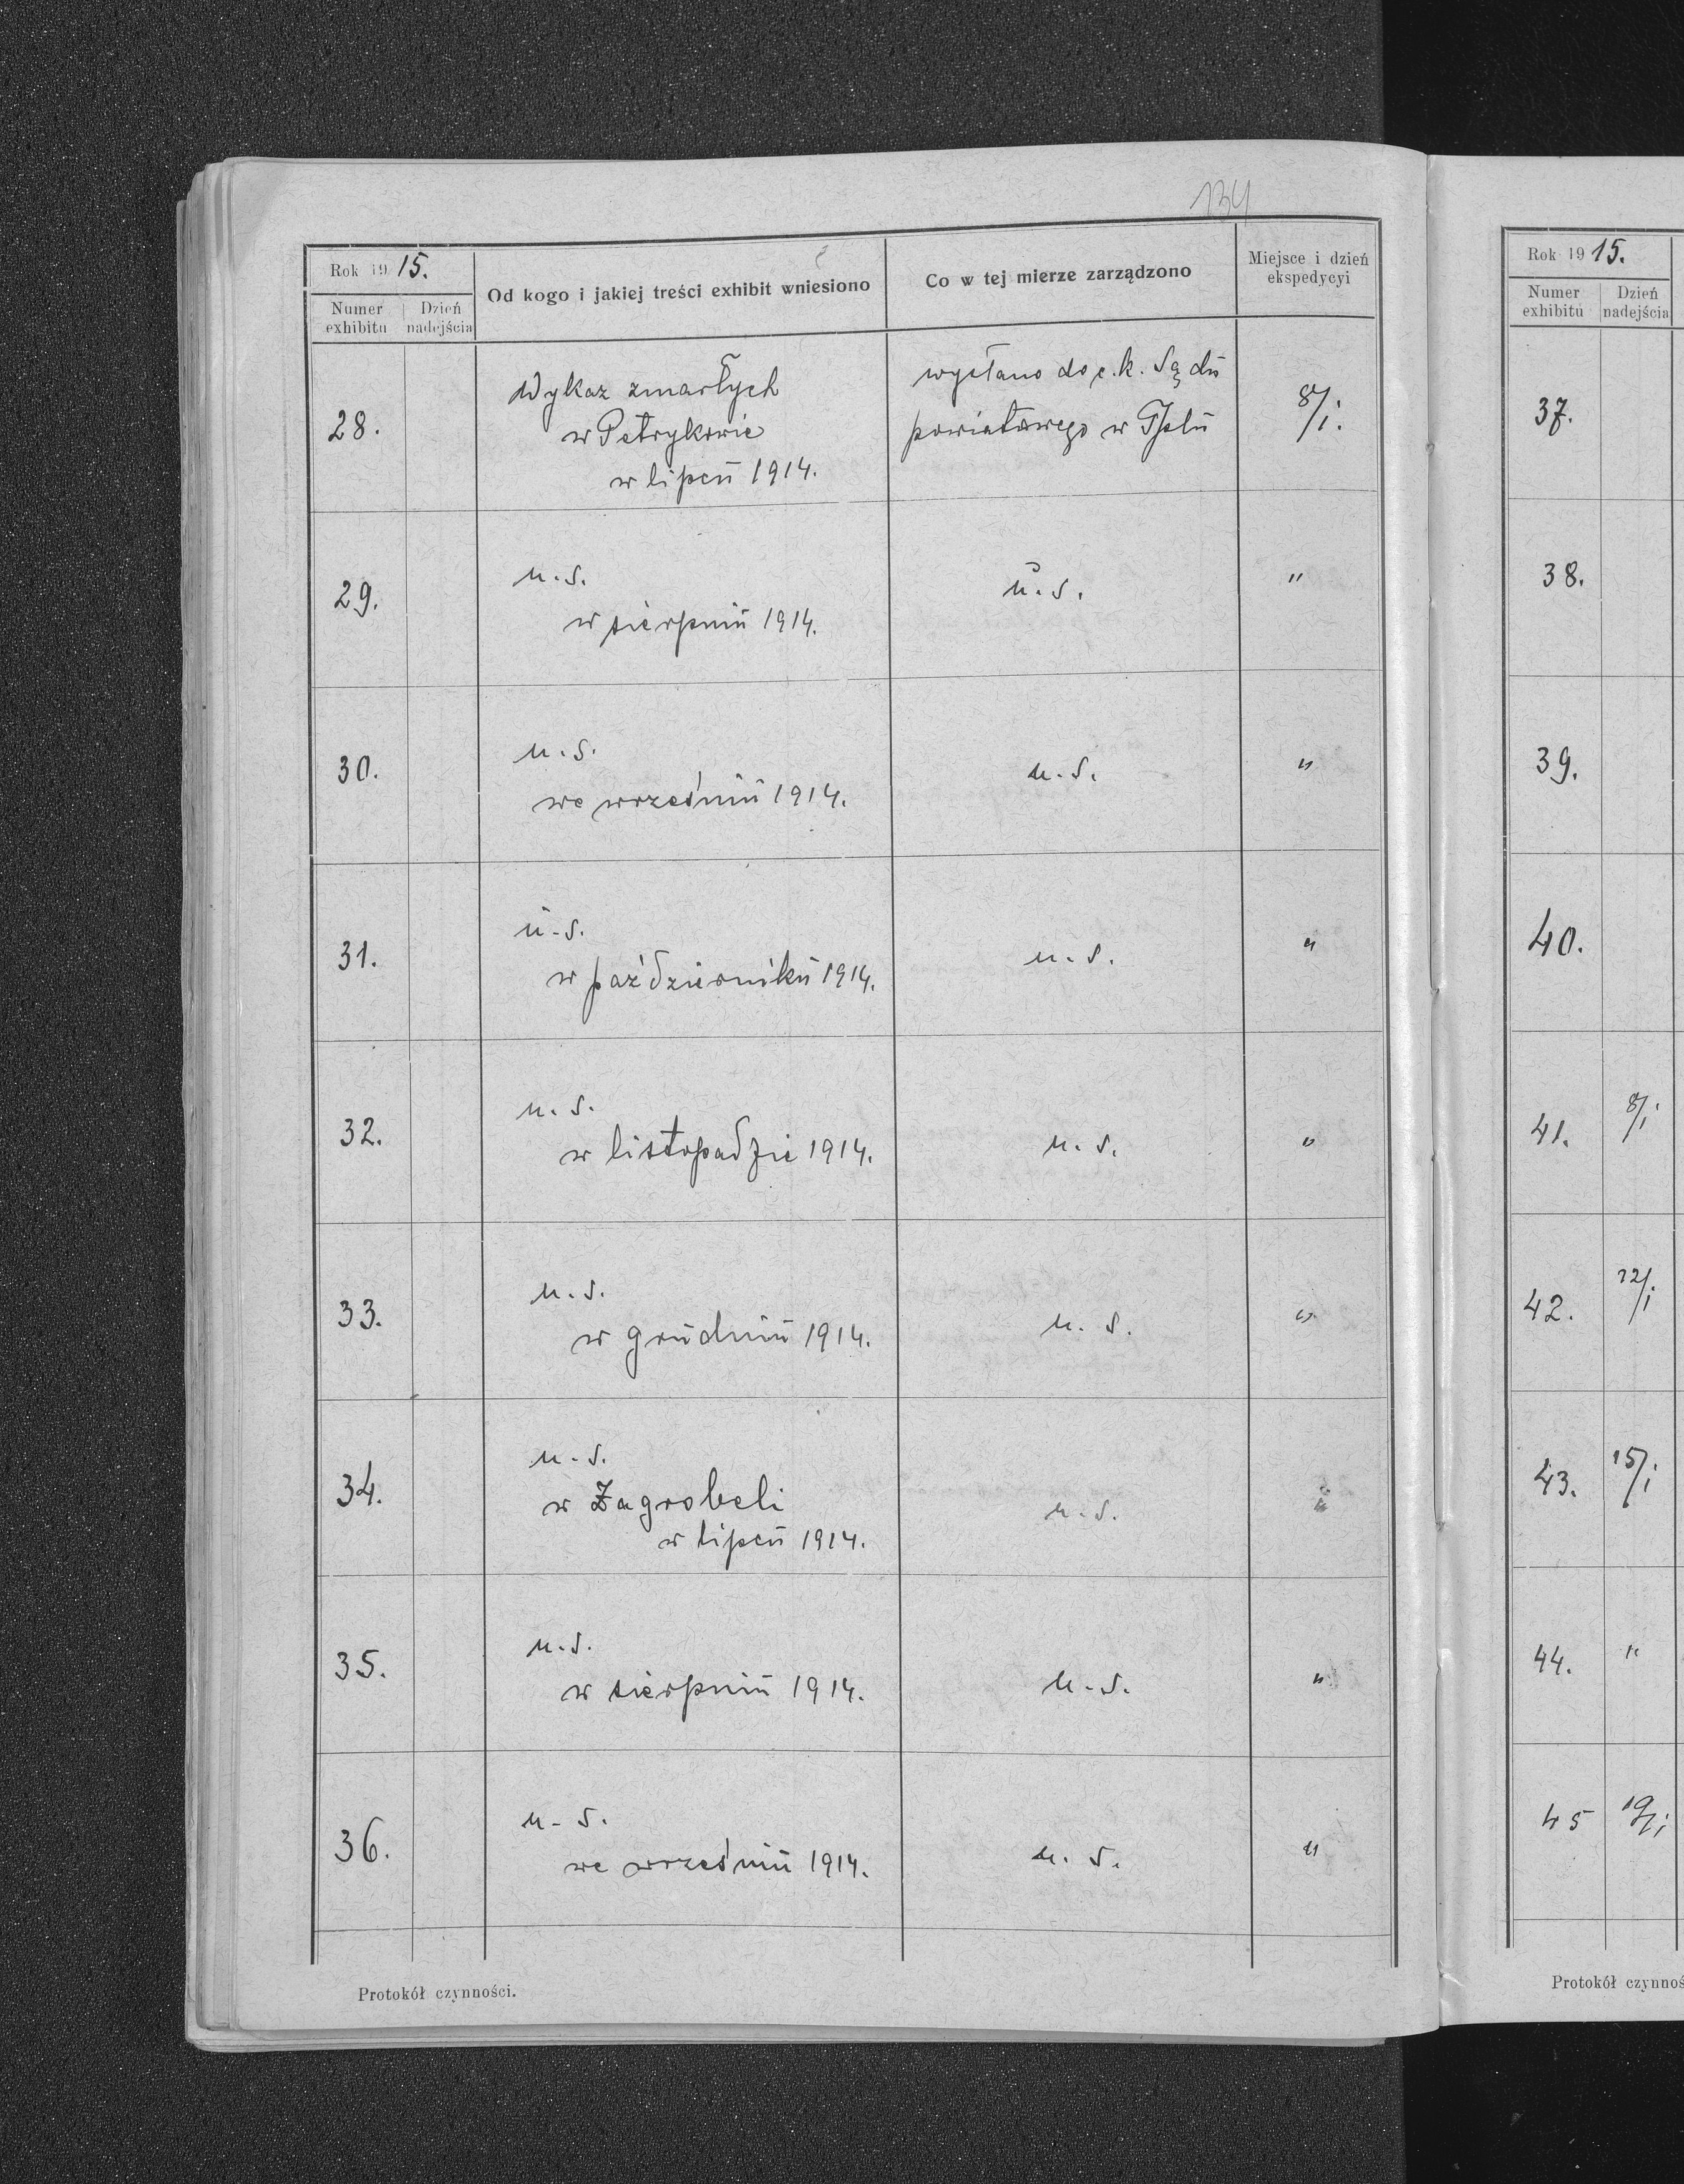 134
Rok 1915.
Numer exhibitu
Dzień nadejścia
Od kogo i jakiej treści exhibit wniesiono
Co w tej mierze zarządzono
Miejsce i dzień ekspedycyi
28.
Wykaz zmarłych
w Petrykowie
w lipcu 1914.
wysłano do c.k. Sądu
powiatowego w Tplu
8/I.
29.
u.s.
w sierpniu 1914.
u.s.
"
30.
u.s.
we wrześniu 1914.
u.s.
"
31.
u.s.
w październiku 1914.
u.s.
"
32.
u.s.
w listopadzie 1914.
u.s.
"
33.
u.s.
w grudniu 1914.
u.s.
"
34.
u.s.
w Zagrobeli
w lipcu 1914.
u.s.
"
35.
u.s.
w sierpniu 1914.
u.s.
"
36.
u.s.
we wrześniu 1914.
u.s.
"
Protokół czynności.
Rok 1915.
Numer exhibitu
Dzień nadejścia
37.
38.
39.
40.
41.
8/I
42.
12/I
43.
15/I
44.
"
45
19/I
Protokół czynnoś